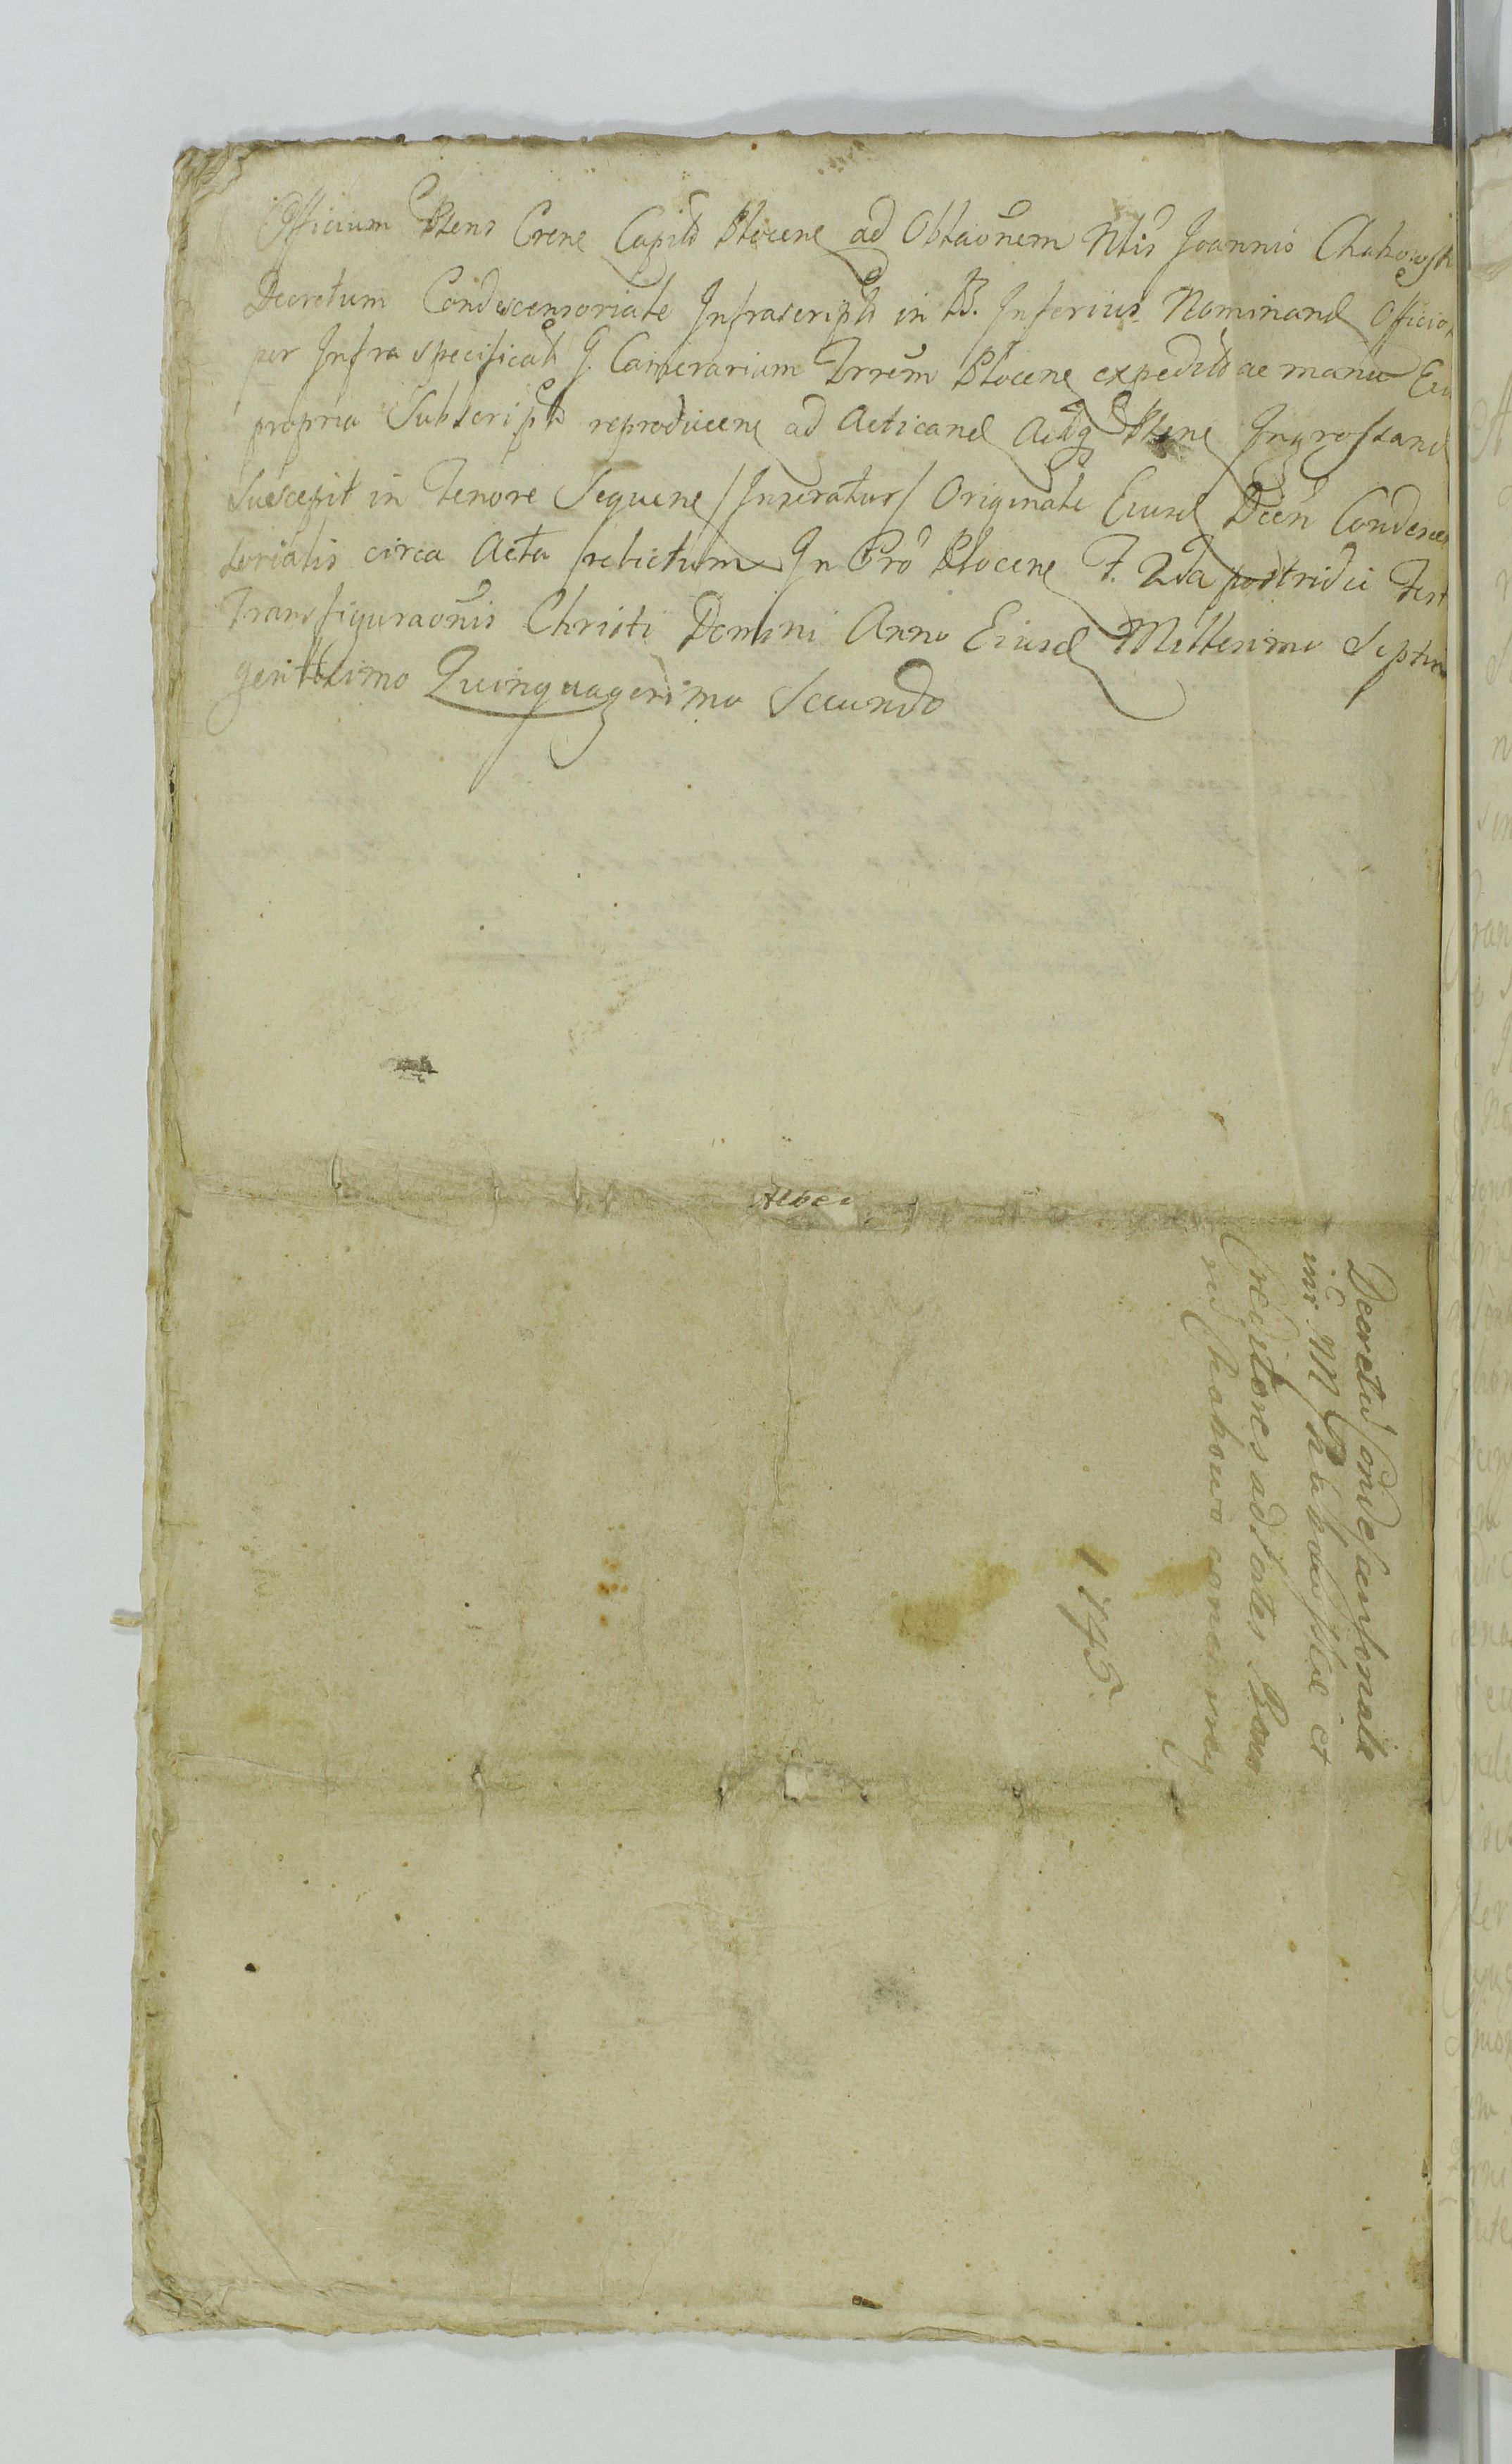 Officium Ptens Crene Capitle Plocene ad Oblaõnem Nlis Joannis Chakowsk
Decretum Condescensoriale Infrascript in B. Inferius Nominand Officio
per Infra specificat G. Camerarium Trrêm Plocene expedit ac manu Eiu
propria Subscript reproducene ad Acticand Actisq Ptene Ingrossand
Suscepit in Tenore Sequene /Inseratur/ Originale Eiusd Decti Condescen
sorialis circa Acta relictum In Cro Plocene F. 2da postridii Fest
Transfiguraõnis Christi Domini Anno Eiusd Millesimo Septin
gentesimo Quinquagesimo Secundo
Decretu Condescensoriale
int M Chakowskie et
Creditores ad sortes Bonor
in Chakowo concurreñ